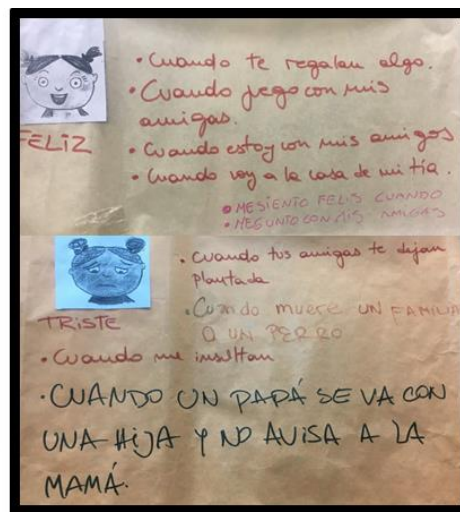 • Cuando te regalan algo.
• Cuando jego con mis
amigas.
FELIZ
• Cuando estoy con mis amigos
• Cuando voy a la casa de mi tía.
• MESIENTO FELIS CUANDO
• MEGUNTO CON MIS AMIGAS
• Cuando tus amigas te dejan
plantada
TRISTE
• Cuando muere UN FAMILIA
O UN PERRO
• Cuando me insultan
• CUANDO UN PAPÁ SE VA CON
UNA HIJA Y NO AVISA A LA
MAMÁ.